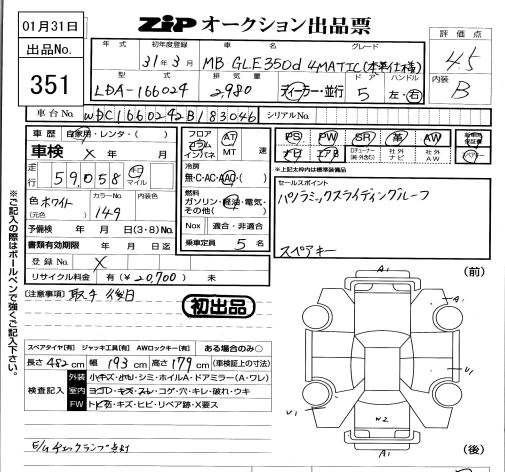 01月31日
ZIP オークション出品票
出品No. 351
年式 初年度登録 車名 グレード
31年3月 MB GLE350d 4MATIC(本革仕様)
型式 排気量 ドア ハンドル
LDA-166024 2,980 ディーラー・並行 5 左・右
評価点 4.5
内装 B
車台No. WDC1660242B183046 シリアルNo.
車歴 自家用・レンタ・( )
車検 X 年 月
走行 59,058 キロ マイル
色 ホワイト (元色) カラーNo. 149 内装色
予備検 年 月 日(3・8)No.
書類有効期限 年 月 日迄
登録No. X
リサイクル料金 有(¥20,700) 未
フロア コラム インパネ AT MT 速
冷房 無・C・AC・AAC・( )
燃料 ガソリン・軽油・電気・その他( )
Nox 適合・非適合
乗車定員 5 名
PS PW SR 革 AW
ナビ エアB TVチューナー(純・外含む) 社外ナビ 社外AW
※上記太枠内は標準装備品
セールスポイント
パノラミックスライディングルーフ
スペアキー
[注意事項] 取説 後日
初出品
スペアタイヤ[有] ジャッキ工具[有] AWロックキー[有] ある場合のみ○
長さ 482 cm 幅 193 cm 高さ 179 cm (車検証上の寸法)
検査記入
外装 小キズ・小凹・シミ・ホイルA・ドアミラー(A・ワレ)
室内 ヨゴレ・キズ・スレ・コゲ・穴・キレ・破れ・ウキ
FW トビ石・キズ・ヒビ・リペア跡・X要ス
E/Gチェックランプ点灯
※ご記入の際はボールペンで強くご記入下さい。
(前)
A1
A1
U1
U1
W2
A1
(後)